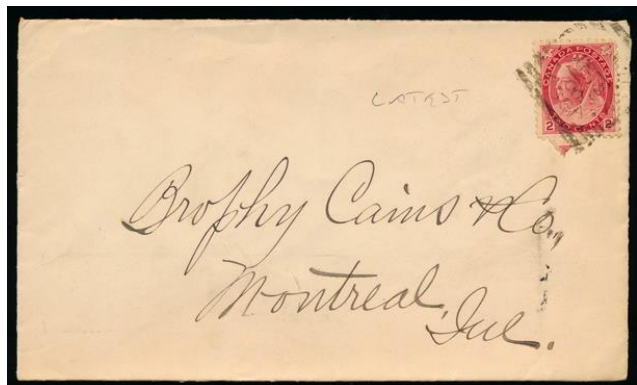 CANADA POSTAGE
2 TWO CENTS 2
LATEST
Brophy Cains & Co.,
Montreal,
Que.